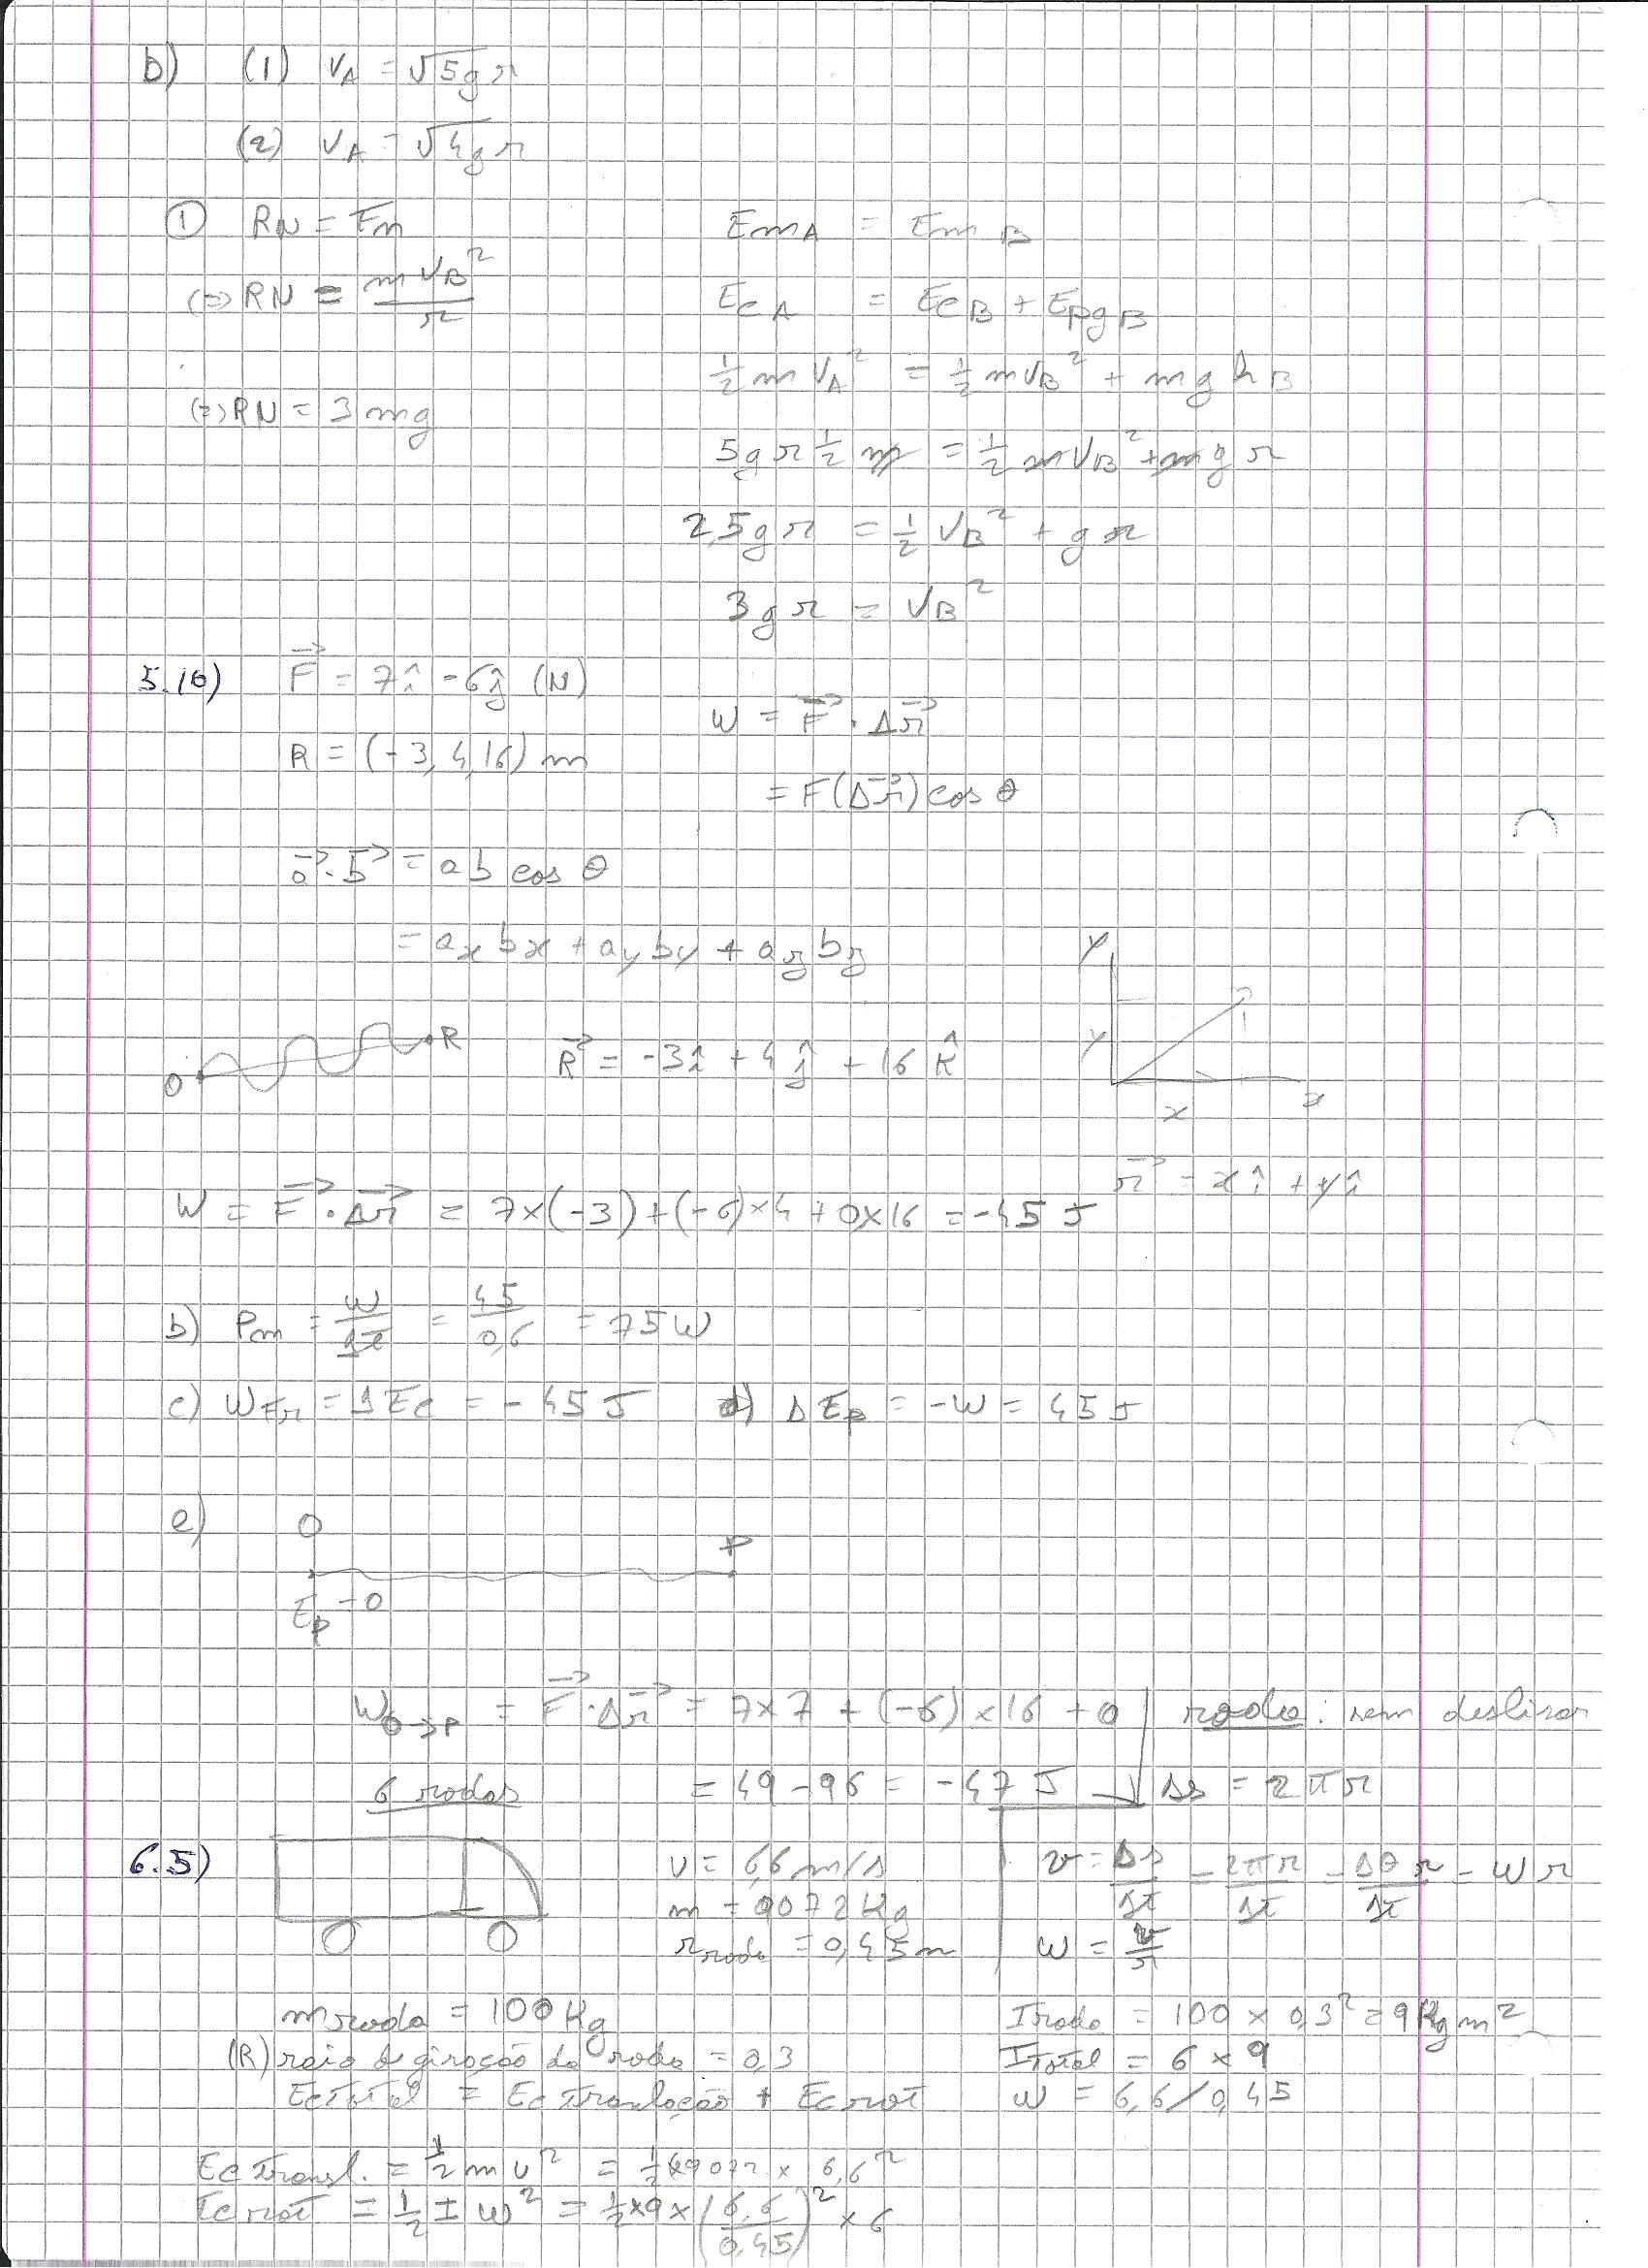 b) (1) VA = √5gr
(2) VA = √4gr
① RN = Fn
(=) RN = m VB² / r
(=) RN = 3mg
EmA = EmB
EcA = EcB + EpgB
½ m VA² = ½ m VB² + m g hB
5gr ½ m = ½ m VB² + m g r
2,5gr = ½ VB² + gr
3gr = VB²
5.16) F⃗ = 7î - 6ĵ (N)
R = (-3, 4, 16) m
W = F⃗ . Δr⃗
= F(Δr⃗) cos θ
a⃗ . b⃗ = ab cos θ
= ax bx + ay by + az bz
O R
R⃗ = -3î + 4ĵ + 16 k̂
y
y
x x
r⃗ = xî + yĵ
W = F⃗ . Δr⃗ = 7×(-3)+(-6)×4+0×16 = -45 J
b) Pm = W/Δt = 45/0,6 = 75W
c) WFr = ΔEc = -45 J d) ΔEp = -W = 45 J
e) O P
Ep = 0
WO→P = F⃗ . Δr⃗ = 7×7 + (-6)×16 + 0
= 49 - 96 = -47 J
roda: sem deslisar
Δs = 2πr
v = Δs/Δt = 2πr/Δt = Δθ r/Δt = w r
w = v/r
6 rodas
6.5) v = 6,6 m/s
m = 9072 Kg
r roda = 0,45 m
m roda = 100 Kg
(R) raio de giração da roda = 0,3
Ec Total = Ec Translação + Ec rot
I roda = 100 × 0,3² = 9 Kg m²
I total = 6 × 9
w = 6,6/0,45
Ec Transl. = ½ m v² = ½ × 9072 × 6,6²
Ec rot = ½ I w² = ½ × 9 × (6,6/0,45)² × 6